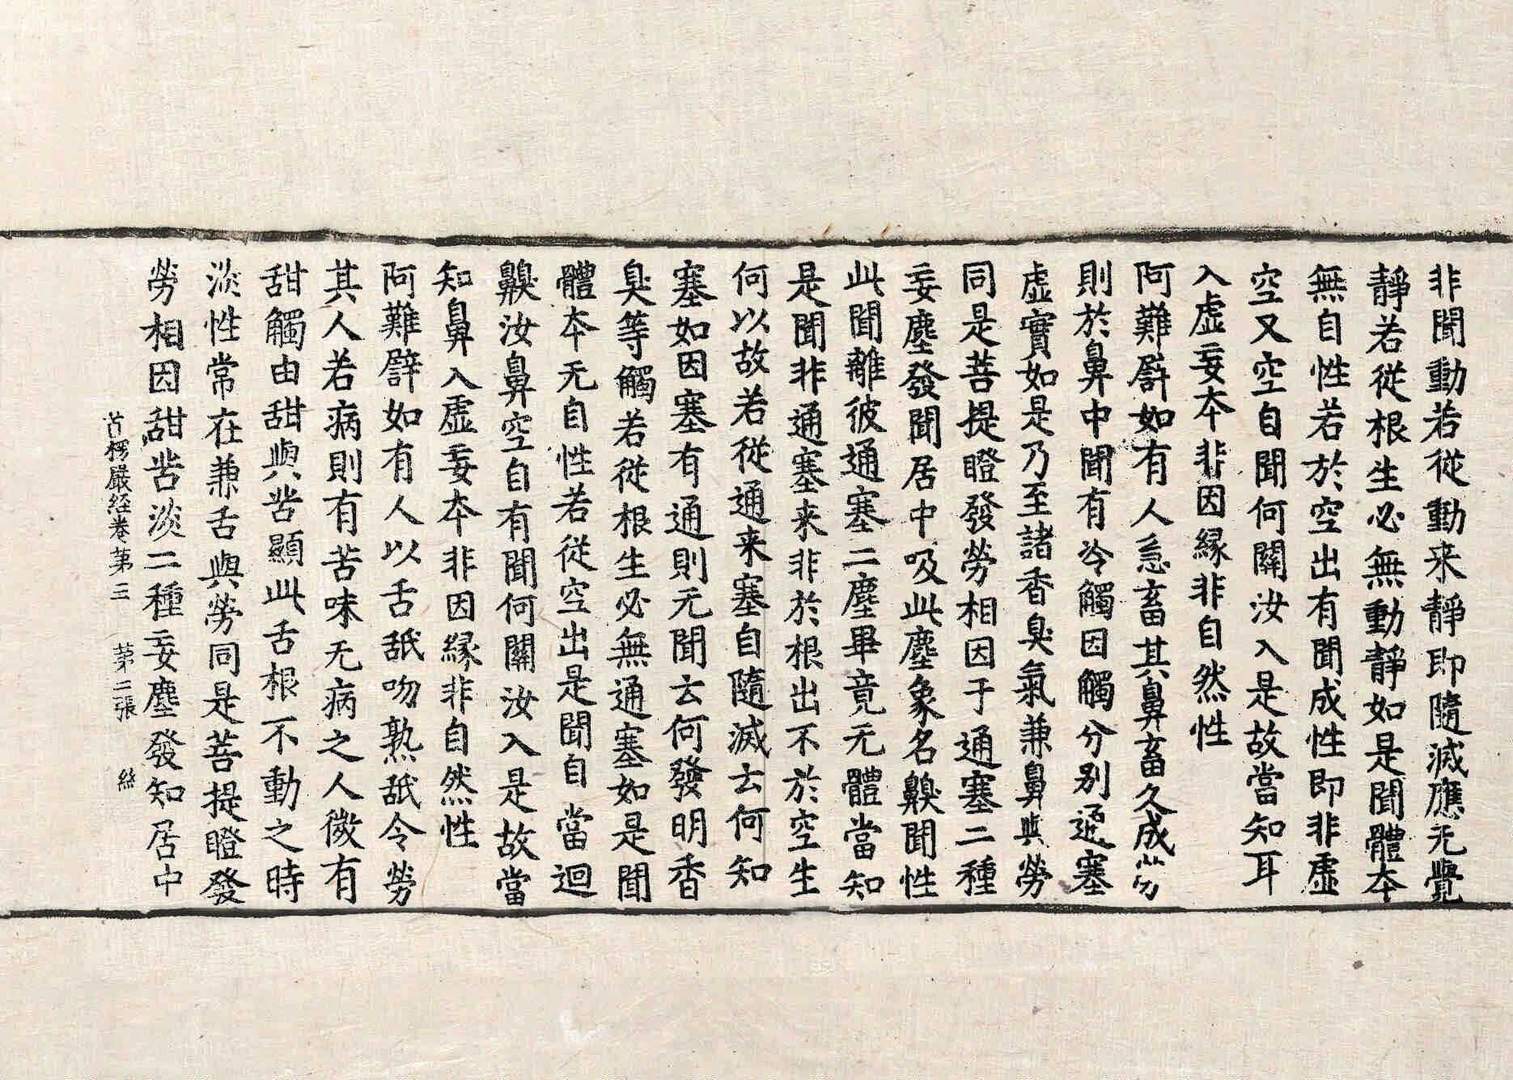 非聞動若從動来靜即隨滅應无覺
靜若從根生必無動靜如是聞體夲
無自性若於空出有聞成性即非虛
空又空自聞何關汝入是故當知耳
入虛妄夲非因緣非自然性
阿難譬如有人急畜其鼻畜久成勞
則於鼻中聞有冷觸因觸分別通塞
虛實如是乃至諸香臭氣兼鼻與勞
同是菩提瞪發勞相因于通塞二種
妄塵發聞居中吸此塵象名齅聞性
此聞離彼通塞二塵畢竟无體當知
是聞非通塞来非於根出不於空生
何以故若從通来塞自隨滅云何知
塞如因塞有通則无聞云何發明香
臭等觸若從根生必無通塞如是聞
體夲无自性若從空出是聞自當迴
齅汝鼻空自有聞何關汝入是故當
知鼻入虛妄夲非因緣非自然性
阿難譬如有人以舌舐吻熟舐令勞
其人若病則有苦味无病之人微有
甜觸由甜與苦顯此舌根不動之時
淡性常在兼舌與勞同是菩提瞪發
勞相因甜苦淡二種妄塵發知居中
首楞嚴経卷第三 第二張 絲